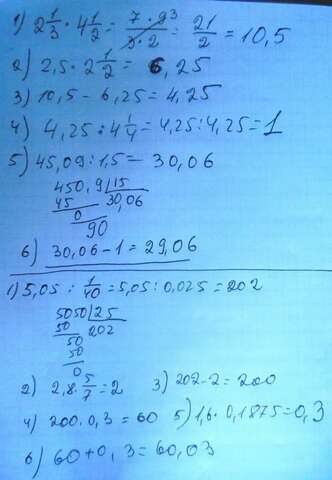 1) 2 1/3 · 4 1/2 = 7 · 9 3 / 3 · 2 = 21/2 = 10,5
2) 2,5 · 2 1/2 = 6,25
3) 10,5 - 6,25 = 4,25
4) 4,25 : 4 1/4 = 4,25 : 4,25 = 1
5) 45,09 : 1,5 = 30,06
450,9 | 15
45 30,06
0
90
6) 30,06 - 1 = 29,06
1) 5,05 : 1/40 = 5,05 : 0,025 = 202
5050 | 25
50 202
50
50
0
2) 2,8 · 5/7 = 2 3) 202 - 2 = 200
4) 200 · 0,3 = 60 5) 1,6 · 0,1875 = 0,3
6) 60 + 0,3 = 60,03